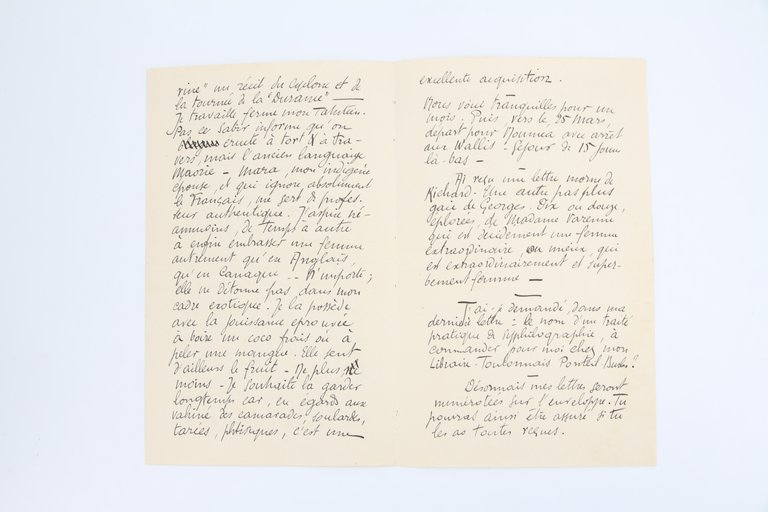 rine" un récit du cyclone et de
la tournée de la "Durance" —
Je travaille ferme mon Tahitien.
Pas ce sabir informe qu'on
éructe à tort et à tra-
vers, mais l'ancien language
Maorie - Mara, mon indigène
épouse, et qui ignore absolument
le Français, me sert de profes-
seur authentique. J'aspire né-
anmoins, de temps à autre
à enfin embrasser une femme
autrement qu'en Anglais,
qu'en Canaque -- N'importe ;
elle ne détonne pas dans mon
cadre exotique. Je la possède
avec la jouissance éprouvée
à boire un coco frais ou à
peler une mangue. Elle sent
d'ailleurs le fruit - Ne plus ni
moins - Je souhaite la garder
longtemps car, en égards aux
vahiné des camarades, soulardes,
tarées, phtisiques, c'est une
excellente acquisition.
Nous voici tranquilles pour un
mois ; Puis vers le 25 Mars,
départ pour Nouméa avec arrêt
aux Wallis - Séjour de 15 jours
là-bas -
Ai reçu une lettre morne de
Richard. Une autre pas plus
gaie de Georges. Dix ou douze,
éplorées de Madame Varenne
qui est décidément une femme
extraordinaire ou mieux, qui
est extraordinairement et super-
bement femme —
T'ai-je demandé dans ma
dernière lettre : "le nom d'un traité
pratique de syphiligraphie, à
commander pour moi chez mon
Libraire Toulonnais
Désormais mes lettres seront
numérotées sur l'enveloppe. Tu
pourras ainsi être assuré si tu
les as toutes reçues.